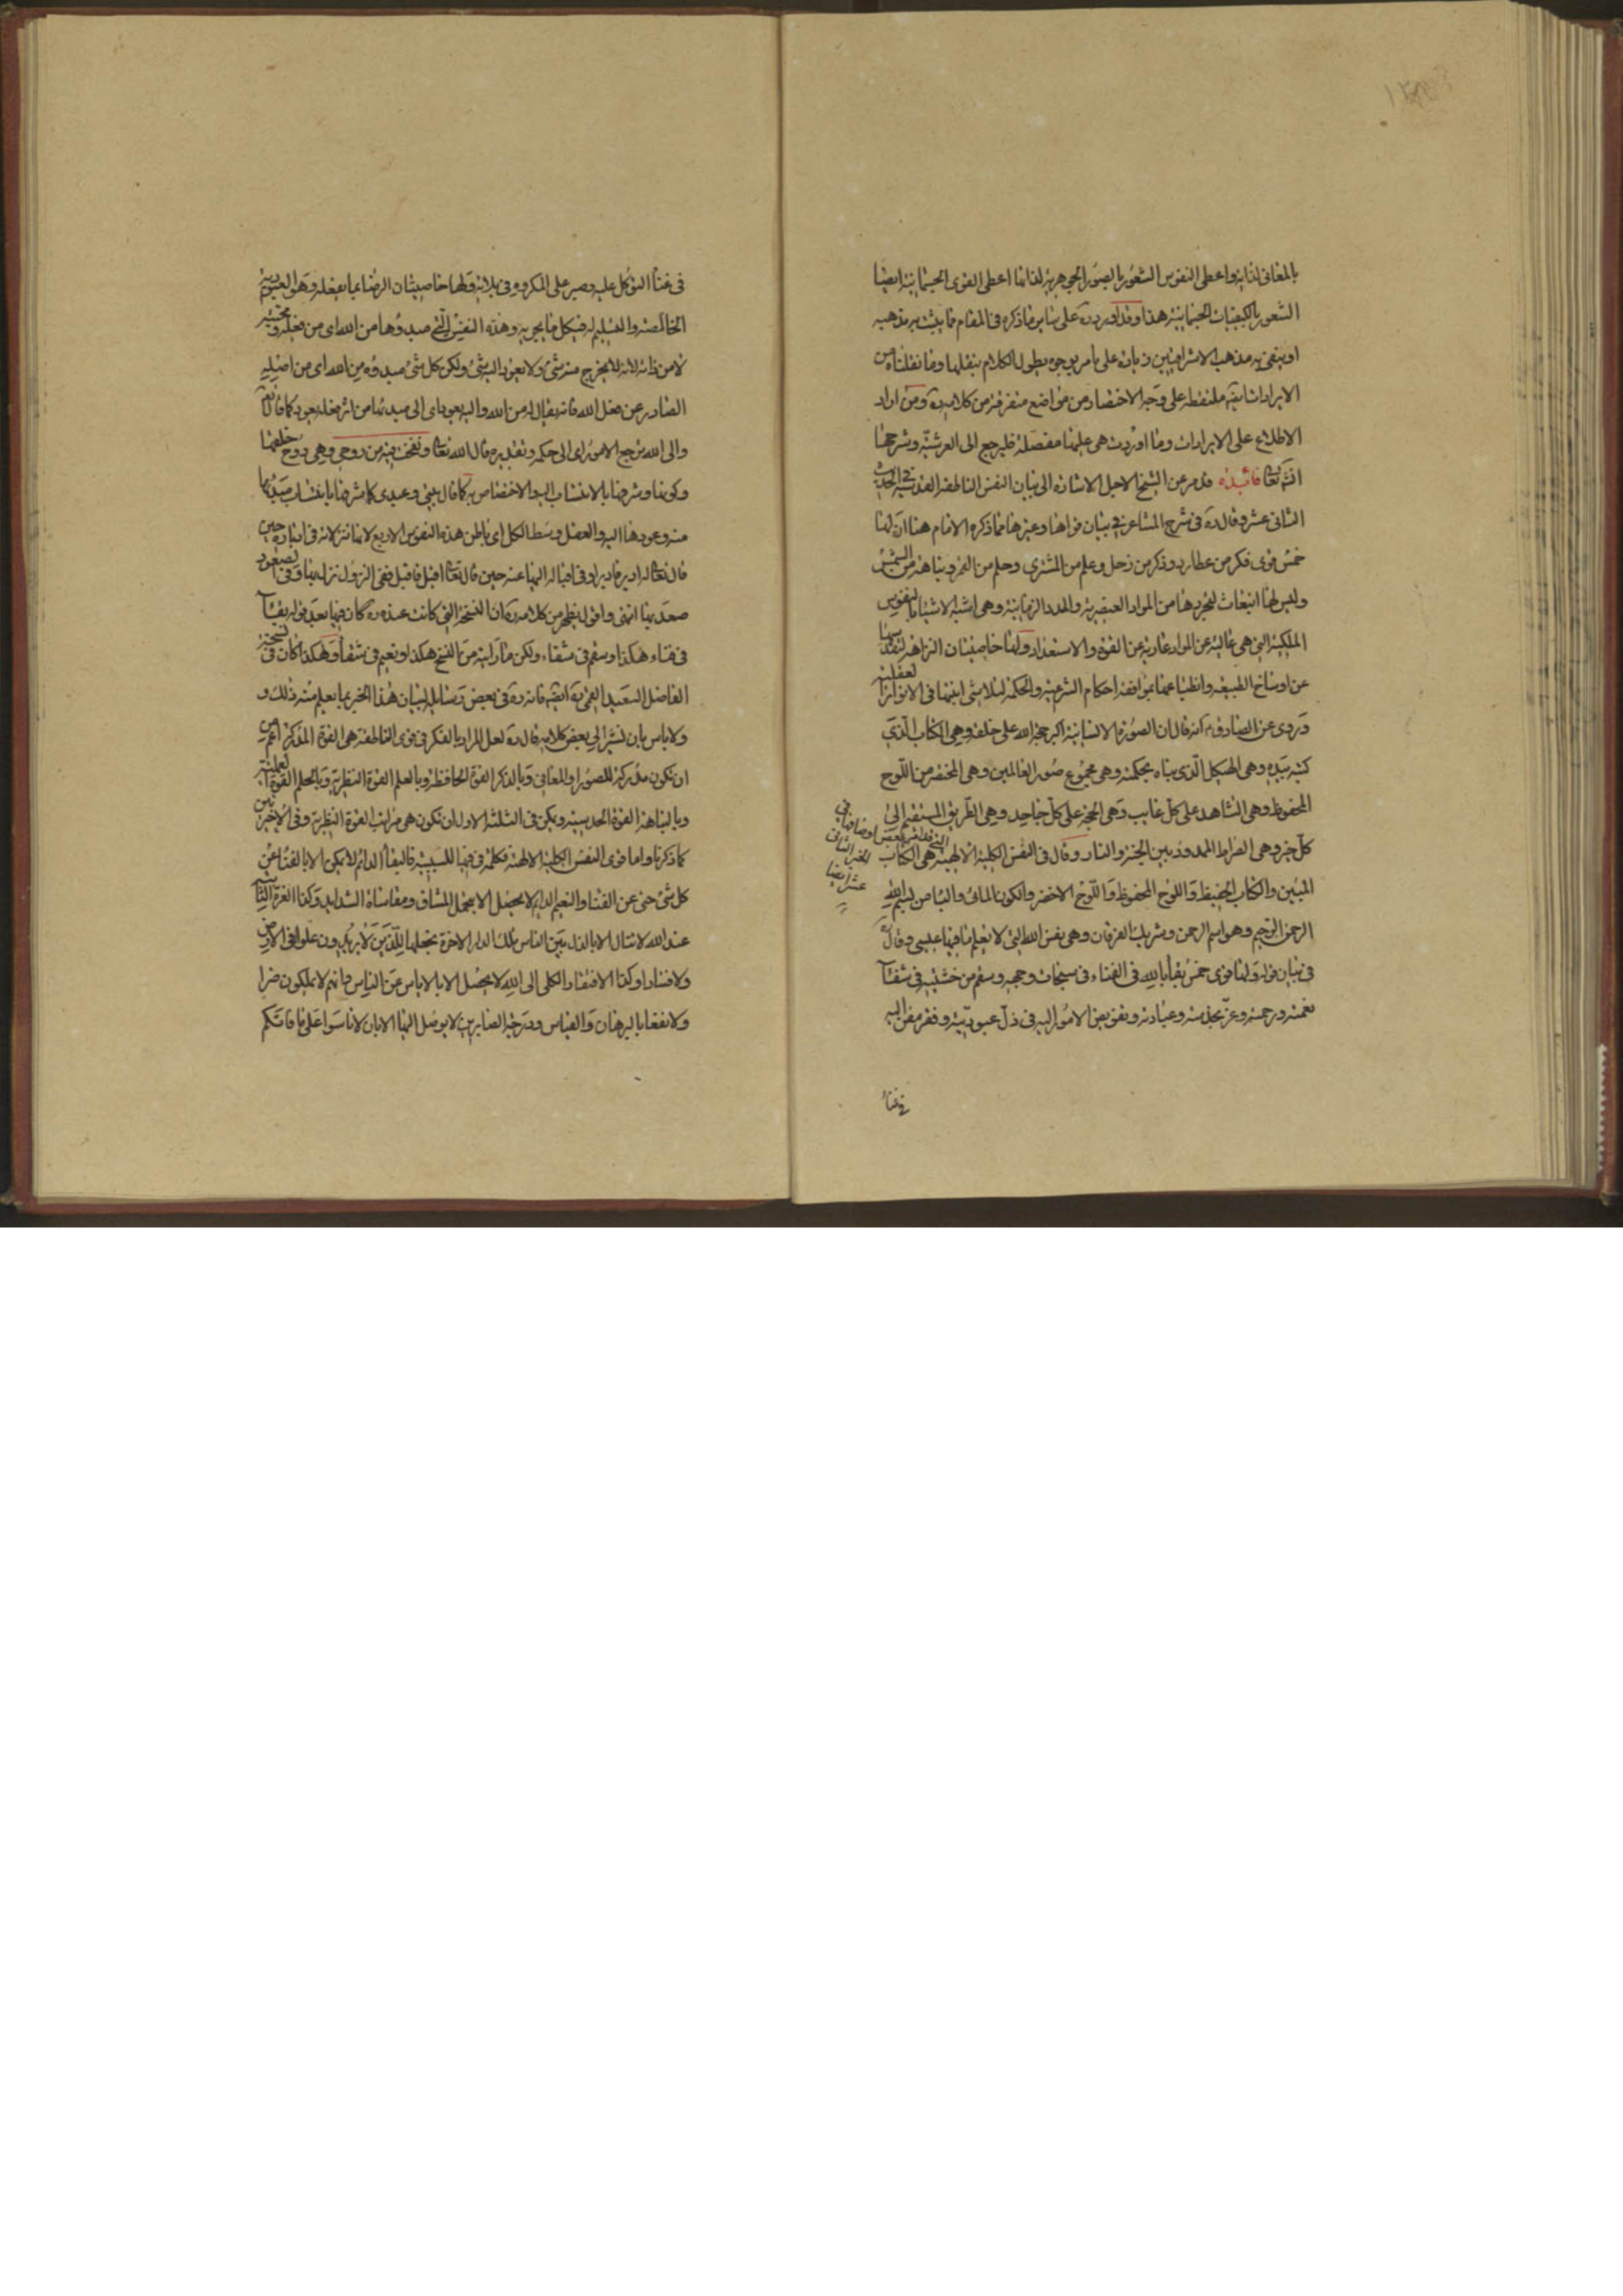 بالمعانى لذاته واعطى النفوس الشعور بالصور الجوهرية لذاتها اعطى القوى الجسمانية ايضا
الشعور بالكيفيات الجسمانية هذا وقد اورد ره على ساير ما ذكره فى المقام مما يثبت به مذهبه
او ينفى به مذهب الاشراقيين زيادة على ما مر بوجوه يطول الكلام بنقلها وما نقلناه من
الايرادات ايضا ملتقطة على وجه الاختصار من مواضع متفرقة من كلامه ره ومن اراد
الاطلاع على الايرادات وما اوردت هى عليها مفصلة فليرجع الى العرشية وشرحها
انشء تعا فائدة قد مر عن الشيخ الاجل الاشارة الى بيان النفس الناطقة القدسية فى الحديث
الثانى عشر وقال ره فى شرح المشاعر فى بيان قواها وغيرها مما ذكره الامام هنا ان لها
خمس قوى فكر من عطارد وذكر من زحل وعلم من المشترى وحلم من القمر ونباهة من الشمس
وليس لها انبعاث لتجردها من المواد العنصرية والمدد الزمانية وهى اشبه الاشياء بالنفوس
الملكية التى هى عالية عن المواد عارية عن القوة والاستعداد ولها خاصيتان النزاهة لتقدسها
عن اوساخ الطبيعة وانظباعها بموافقة احكام الشرعية والحكمة لتلاشى انيتها فى الانوار العقلية
وروى عن الصادق ع انه قال ان الصورة الانسانية اكبر حجة الله على خلقه وهى الكتاب الذى
كتبه بيده وهى الهيكل الذى بناه بحكمته وهى مجموع صور العالمين وهى المختصر من اللوح
المحفوظ وهى الشاهد على كل غايب وهى الحجة على كل جاحد وهى الطريق المستقيم الى
كل خير وهى الصراط الممدود بين الجنة والنار وقال فى النفس الكلية الالهية هى الكتاب
التى قد مر بعض اوصافها فى
الخبر الثانى
عشر ايضا
المبين والكتاب الحفيظ واللوح المحفوظ واللوح الاخضر والكون المائى والباء من بسم الله
الرحمن الرحيم وهو اسم الرحمن وشريك الفرقان وهى نفس الله التى لا يعلم ما فيها عيسى وقال ره
فى بيان قوله ولها قوى خمس بقاء بالله فى الفناء فى سبحات وجهه وسقم من خشيته فى شفاء
نعمته ورحمته وعز بخدمته وعبادته وتفويض الامور اليه فى ذل عبوديته وفقر مفض اليه
فى غناء
فى غناء التوكل عليه وصبر على المكروه فى بلائه ولها خاصيتان الرضا بما يفعله وهو العبودية
الخالصة والتسليم له فى كل ما يجريه وهذه النفس التى مبدؤها من الله اى من فعله ومحبته
لا من ذاته لانه لا يخرج منه شئ ولا يعود اليه شئ ولكن كل شئ مبدؤه من الله اى من اصله
الصادر عن فعل الله فانه يقال له من الله واليه يعود اى الى مبدئها من اثر فعله يعود كما قال تعا
والى الله ترجع الامور اى الى حكمه وتقديره قال الله تعا ونفخت فيه من روحى وهى روح خلقها
وكونها وشرفها بالانتساب اليه والاختصاص به كما قال بيتى وعبدى كما شرفها بانتساب مبدئها
منه وعودها اليه والعقل وسط الكل اى باطن هذه النفوس الاربع لانها تنزلاته فى ادباره حين
قال تعا له ادبر فادبر او فى اقباله اليها عنه حين قال تعا اقبل فاقبل ففى النزول نزل بها وفى الصعود
صعد بها انتهى واقول يظهر من كلامه ره ان النسخة التى كانت عنده ره كان فيها بعد قوله بقاء
فى فناء هكذا وسقم فى شفاء ولكن ما رايته من النسخ هكذا ونعيم فى شقاء وهكذا كان فى نسخة
الفاضل السعيد القمى ره ايضا فانه ره فى بعض رسايله لبيان هذا الخبر بما يعلم منه ذلك و
ولا باس بان نشير الى بعض كلامه قال ره لعل المراد بالفكر فى قوى الناطقة هى القوة المفكرة اعم من
ان تكون مدركة للصور او المعانى وبالذكر القوة الحافظة وبالعلم القوة النظرية وبالحلم القوة العملية
وبالنباهة القوة الحدسية ويمكن فى الثلثة الاول ان تكون هى مراتب القوة النظرية وفى الاخيرين
كما ذكرنا واما قوى النفس الكلية الالهية فكلمة فى فيها للسببية فالبقاء الدائم لا يكون الا بالفناء عن
كل شئ حتى عن الفناء والنعيم الدايم لا يحصل الا بتحمل المشاق ومقاساة الشدايد وكذا العزة الثابتة
عند الله لا تنال الا بالذل بين الناس تلك الدار الاخرة نجعلها للذين لا يريدون علوا فى الارض
ولا فسادا وكذا الافتقار الكلى الى الله لا يحصل الا بالاياس عن الناس فانهم لا يملكون ضرا
ولا نفعا بالبرهان والقياس ودرجة الصابرين لا يوصل اليها الا بان لا تاسوا على ما فاتكم